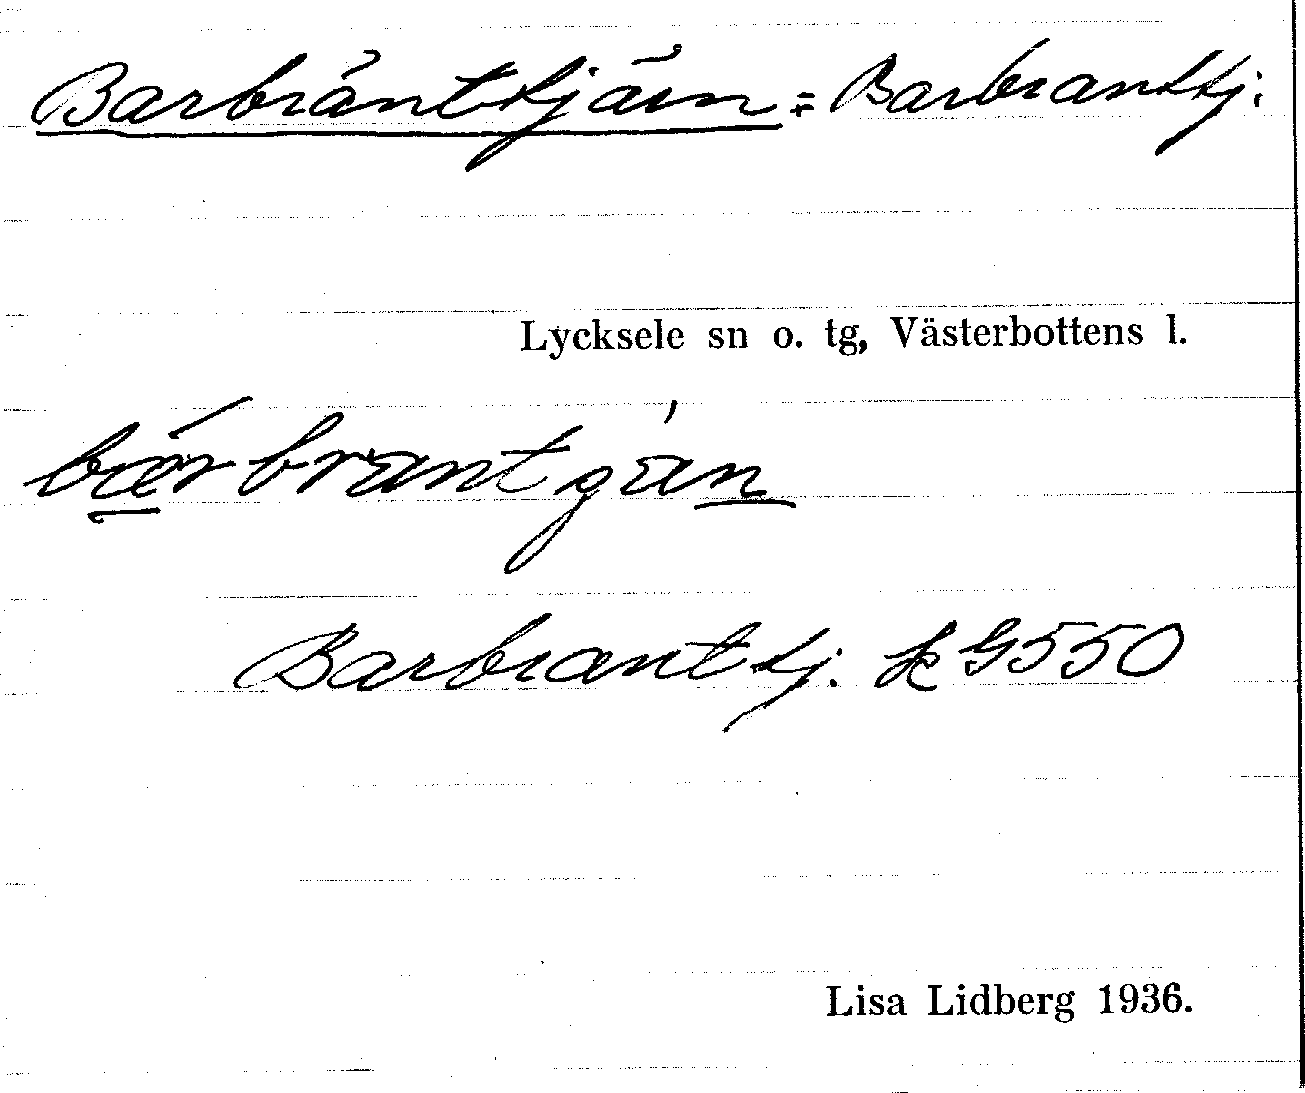 Barbränttjärn = Barbranttj.
Lycksele sn o. tg, Västerbottens l.
bær brant
Barbranttj. k G550
Lisa Lidberg 1936.